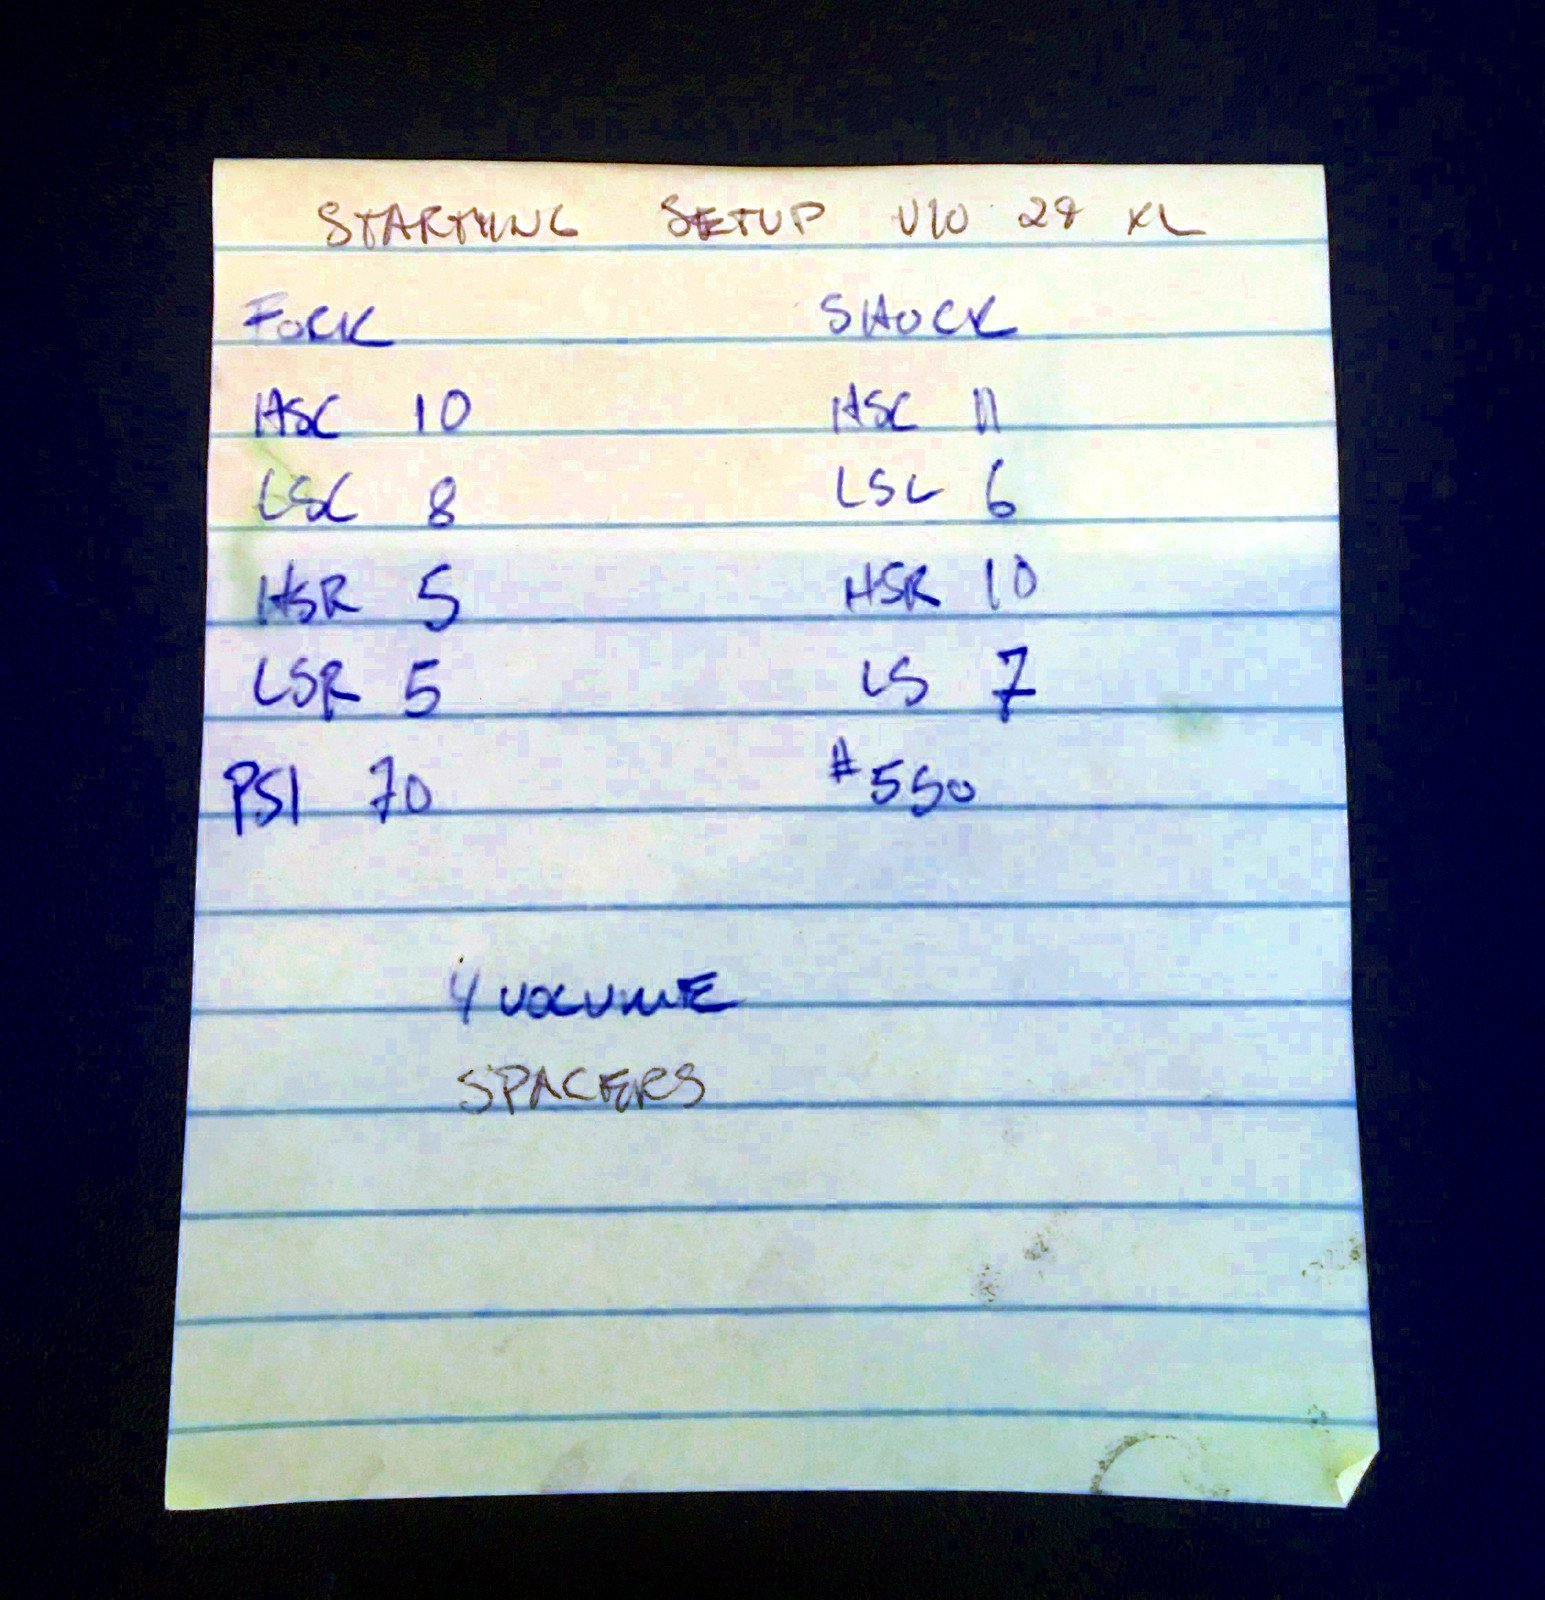 STARTING SETUP V10 29 XL
FORK SHOCK
HSC 10 HSC 11
LSC 8 LSC 6
HSR 5 HSR 10
LSR 5 LS 7
PSI 70 #550
4 VOLUME
SPACERS